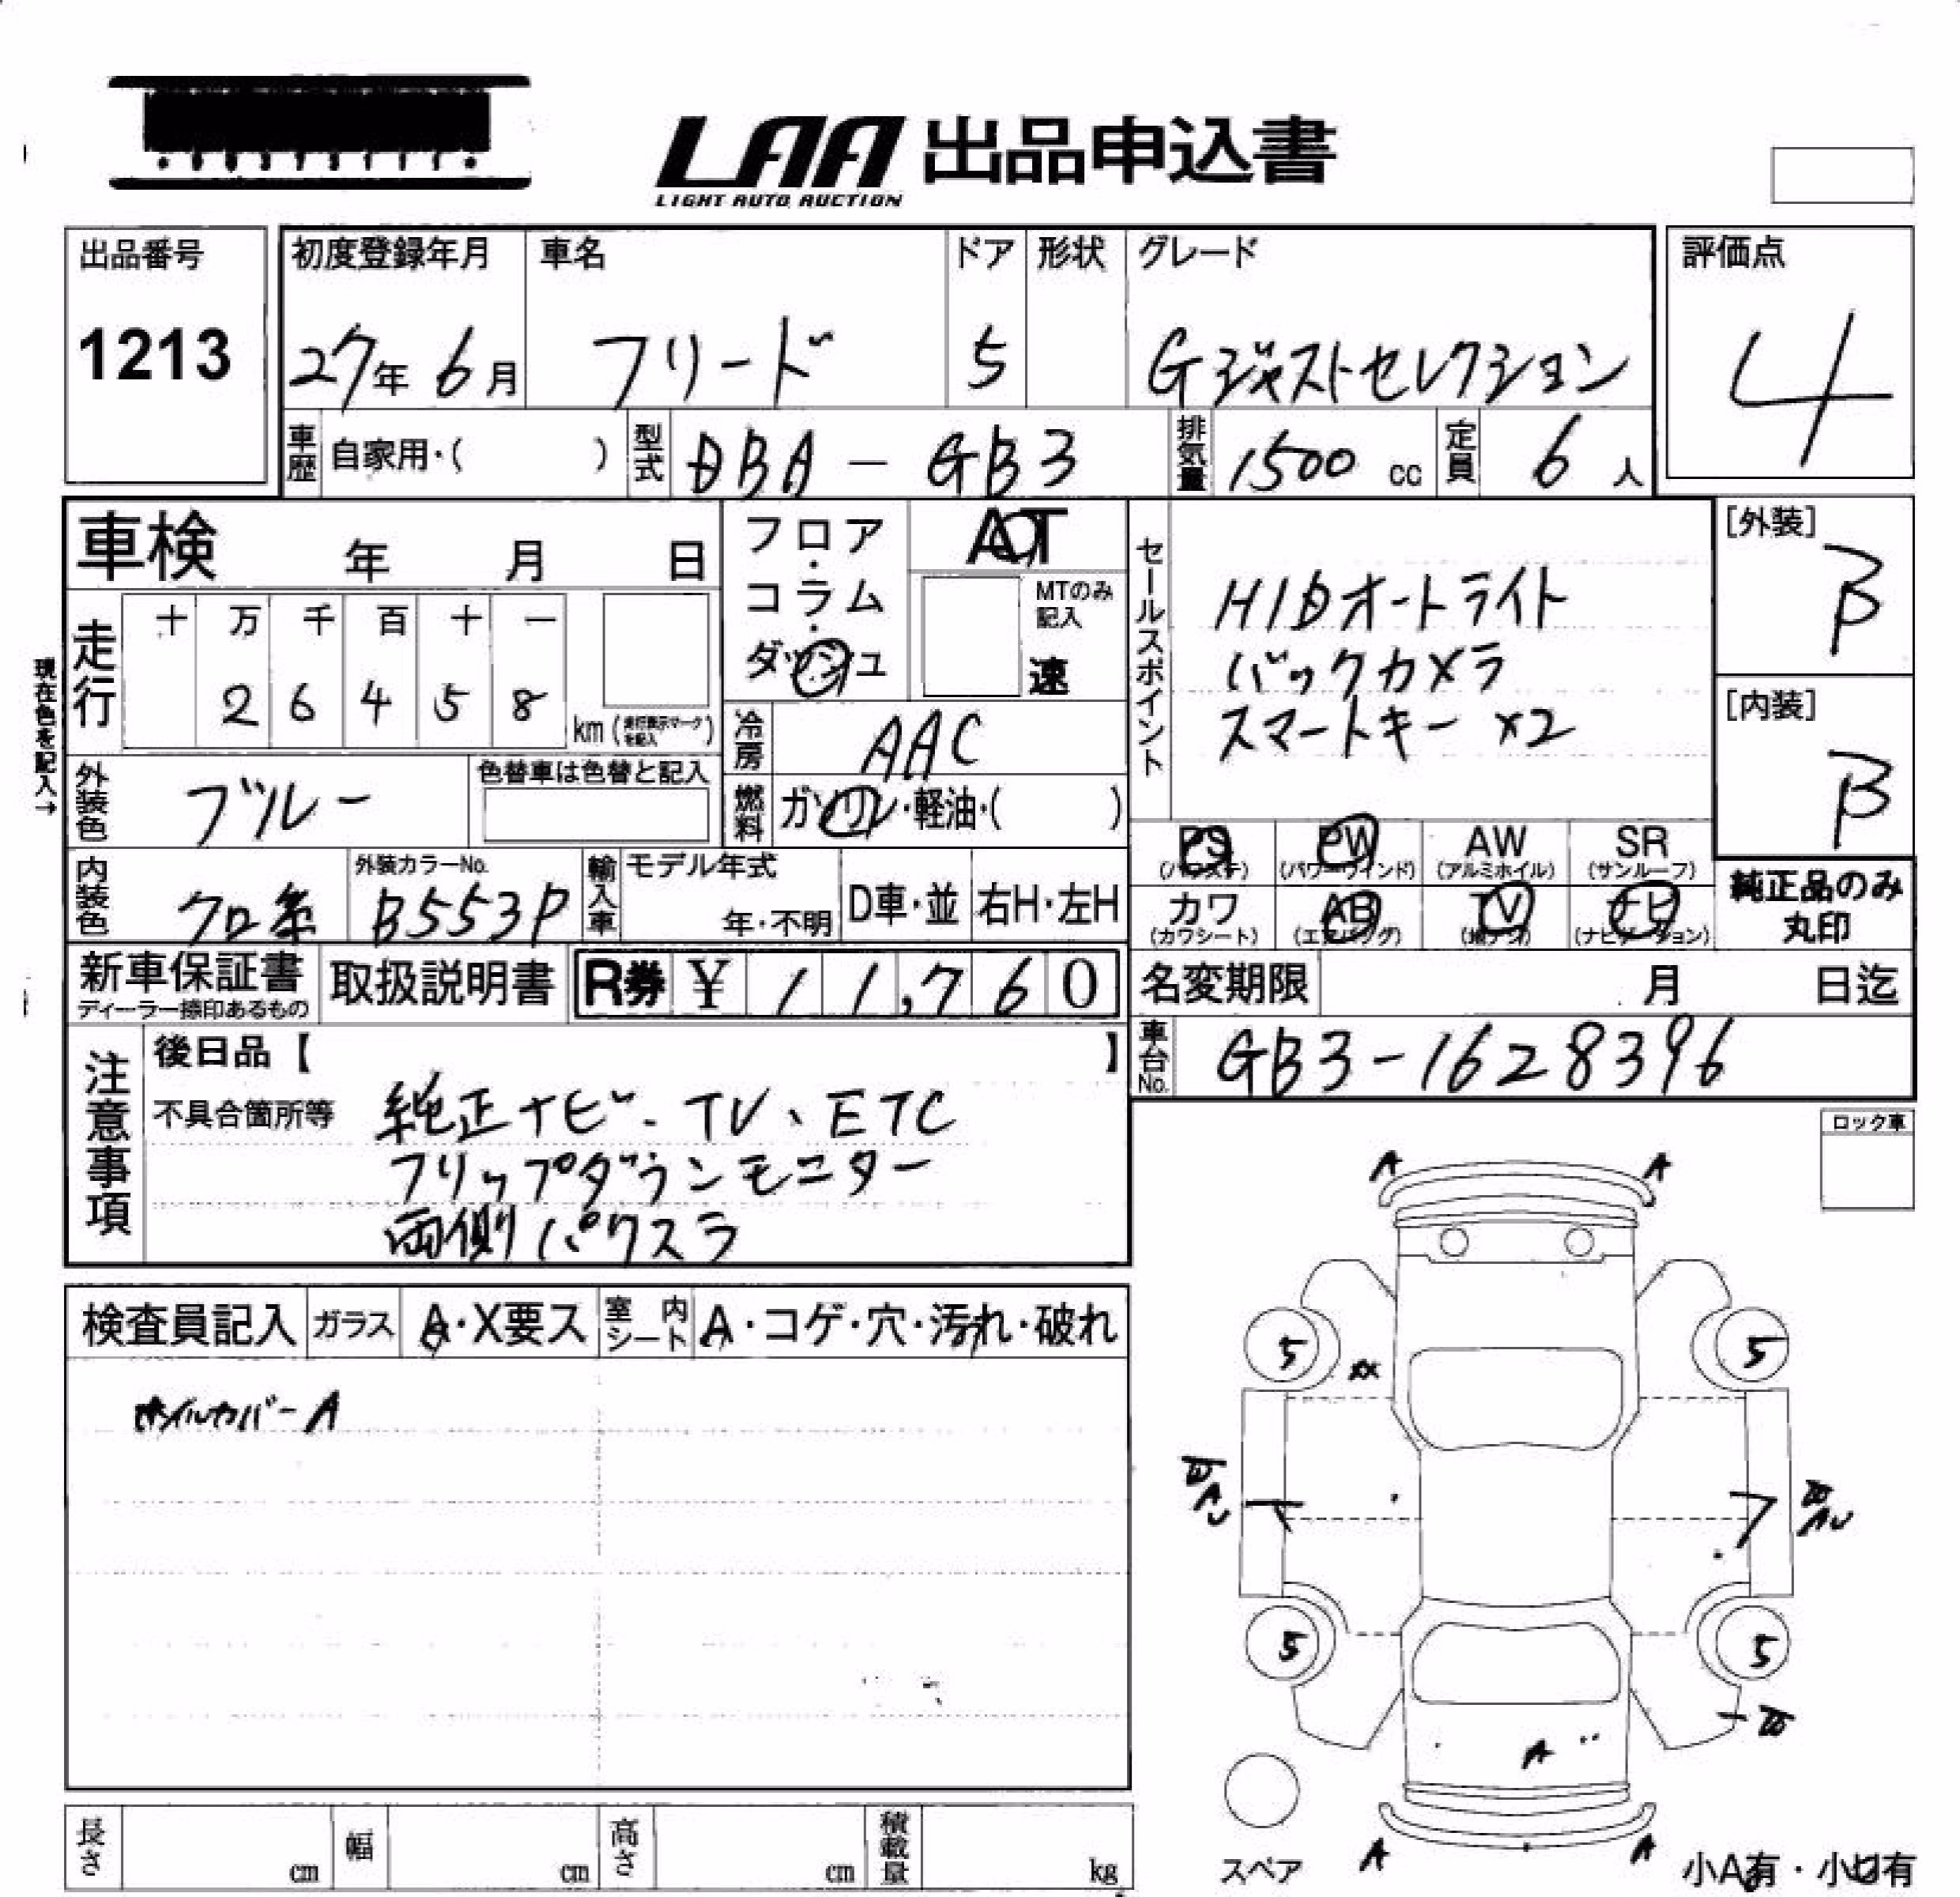 LAA 出品申込書
LIGHT AUTO AUCTION
出品番号
1213
初度登録年月
27年 6月
車名
フリード
ドア
5
形状
グレード
Gジャストセレクション
評価点
4
車歴 自家用・( )
型式 DBA - GB3
排気量 1500 cc
定員 6 人
車検 年 月 日
フロア・コラム・ダッシュ
AT
MTのみ記入
速
セールスポイント
HIDオートライト
バックカメラ
スマートキー ×2
[外装]
B
[内装]
B
現在色を記入→
走行
十 万 千 百 十 一
2 6 4 5 8
km (走行表示マークを記入)
冷房 AAC
外装色 ブルー
色替車は色替と記入
燃料 ガソリン・軽油・( )
PS AW SR PW
(パワステ) (パワーウインド) (アルミホイル) (サンルーフ)
カワ AB TV ナビ
(カワシート) (エアバッグ) (地デジ) (ナビゲーション)
純正品のみ
丸印
内装色 クロ系
外装カラーNo.
B553P
輸入車
モデル年式
年・不明
D車・並
右H・左H
新車保証書
ディーラー捺印あるもの
取扱説明書
R券 ¥ 11,760
名変期限 月 日迄
車台No. GB3-1628396
注意事項
後日品【 】
不具合箇所等
純正ナビ、TV、ETC
フリップダウンモニター
両側パワスラ
ロック車
検査員記入
ガラス A・X要ス
室内シート A・コゲ・穴・汚れ・破れ
ホイルカバーA
A A
5 5
XX
5 5
A
A A
スペア
小A有・小U有
長さ cm
幅 cm
高さ cm
積載量 kg